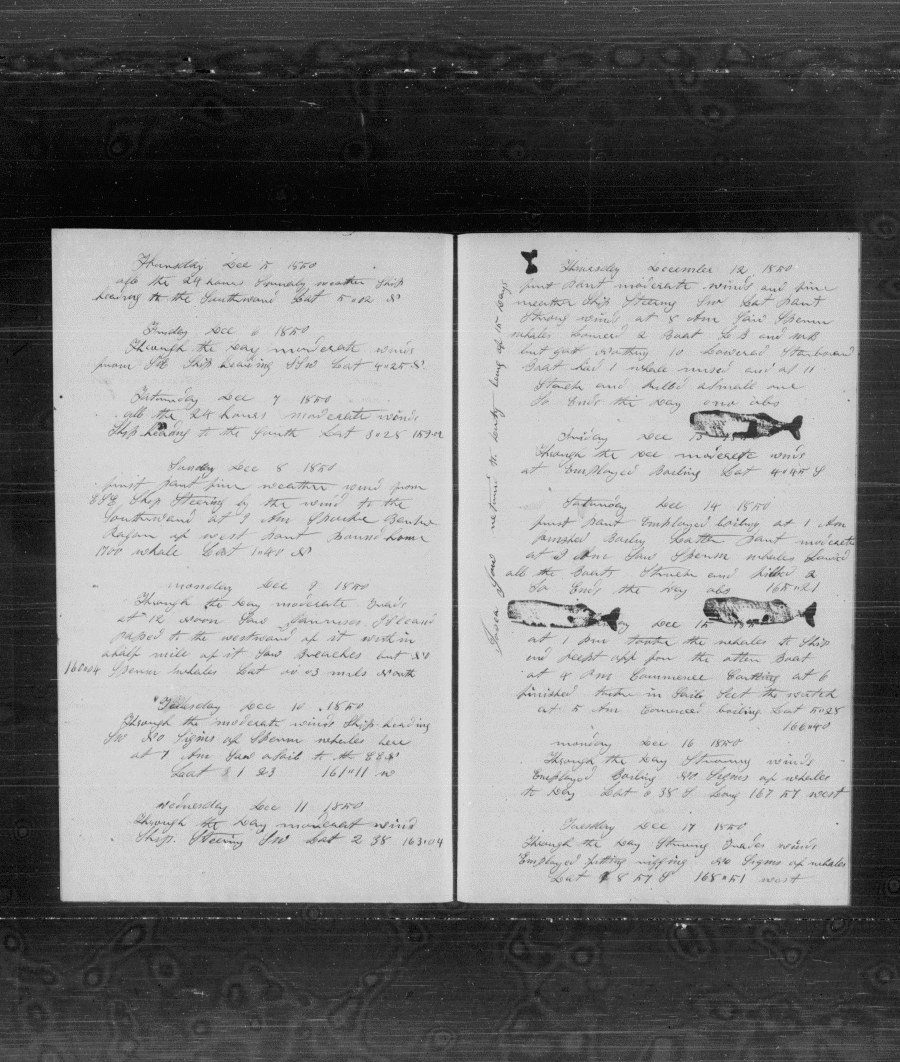 Thursday Dec 5 1850
all the 24 hours Squaly weather Ship
heading to the Southward Lat 5.02 N
Friday Dec 6 1850
Through the day moderate winds
from SE Ship heading SSW Lat 4.25 N
Saturday Dec 7 1850
all the 24 hours moderate winds
Ship heading to the South Lat 3.28
Sunday Dec 8 1850
first part fine weather wind from
ESE Ship Steering by the wind to the
Southward at 9 Am Spoke
of west Bound home
1700 whale Lat 1.40 N
monday Dec 9 1850
Through the day moderate trads
at 12 noon Saw Island
passed to the westward of it within
a half mile of it Saw Breaches but No
Sperm whales Lat 00.03 mils North
Tuesday Dec 10 1850
Through the moderate winds Ship heading
SW No Signs of Sperm whales here
at 7 Am Saw a Sail to the
Lat 1 23 161.11 w
Wednesday Dec 11 1850
Through the day moderat wind
Ship Steering SW Lat 2 38 163.04
Thursday December 12 1850
first Part moderate winds and fine
weather Ship Steering SW Lat Part
Strong winds at 8 Am Saw Sperm
whales Lowred 2 Boat LB and WB
but got Nothing 10 Lowered Starboard
Boat had 1 whale and at 11
Struck and killed a Small one
So Ends this day
Friday Dec
Through the Dec moderate winds
at Employed Boiling Lat 4.45 S
Saturday Dec 14 1850
first Part Employed boiling at 1 Am
finished Boiling Latter Part moderate
at 9 Am Saw Sperm whales Lowred
all the Boats Struck and killed 2
So Ends the day 165.21
Dec 15
at 1 Pm the whales to Ship
and the other Boat
at 4 Pm Commence Cutting at 6
finished in Sails Set the watch
at 5 Am Comenced boiling Lat 5.28
166.40
monday Dec 16 1850
Through the day Strong winds
Employed Boiling No Signs of whales
to day Lat 6 38 S Long 167 57 west
Tuesday Dec 17 1850
Through the day Strong trades winds
Employed fitting rigging No Signs of whales
Lat 8 57 S 168.51 west